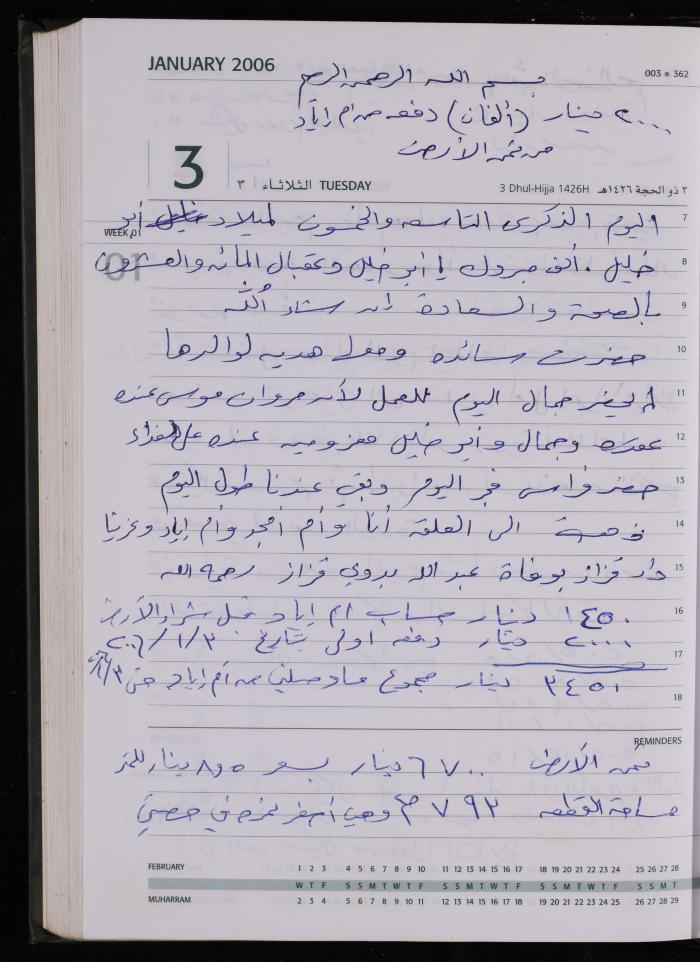 JANUARY 2006
003 • 362
بسم الله الرحمن الرحيم
٢٠٠٠ دينار (ألفان) دفعه من ام اياد
من ثمن الأرض
3
٣ الثلاثاء TUESDAY
3 Dhul-Hijja 1426H ٢ ذو الحجة ١٤٢٦هـ
7 اليوم الذكرى التاسعه والخمسون لميلاد أبو
WEEK 01
01
8 خليل . ألف مبروك يا ابو خليل وعقبال المائه والعشرون
9 بالصحة والسعادة ان شاء الله
10 حضرت سائده ومعها هديه لوالدها
11 لم يحضر جمال اليوم للعمل لأن مروان موسى عنده
12 وجمال وأبو خليل معزومين عنده على الغداء
13 حضر فراس فجر اليوم وبقي عندنا طول اليوم
14 ذهبت الى العلقه أنا وأم أمجد وأم اياد وعزينا
15 دار قزاز بوفاة عبد الله بدوي قزاز رحمه الله
16 ١٤٥٠ دينار حساب ام اياد قبل شراء الأرض
٢٠٠٠ دينار دفعه اولى بتاريخ ٢٠٠٦/١/٣
17
٣٤٥٠ دينار مجموع ما وصلني من أم اياد حتى ١/٣
18
REMINDERS
ثمن الأرض ٦٧٠٠ دينار بسعر ٨٫٥ دينار للمتر
مساحة القطعه ٧٩٢ م وهي أصغر نمره في حصتي
FEBRUARY 1 2 3 4 5 6 7 8 9 10 11 12 13 14 15 16 17 18 19 20 21 22 23 24 25 26 27 28
W T F S S M T W T F S S M T W T F S S M T W T F S S M T
MUHARRAM 2 3 4 5 6 7 8 9 10 11 12 13 14 15 16 17 18 19 20 21 22 23 24 25 26 27 28 29